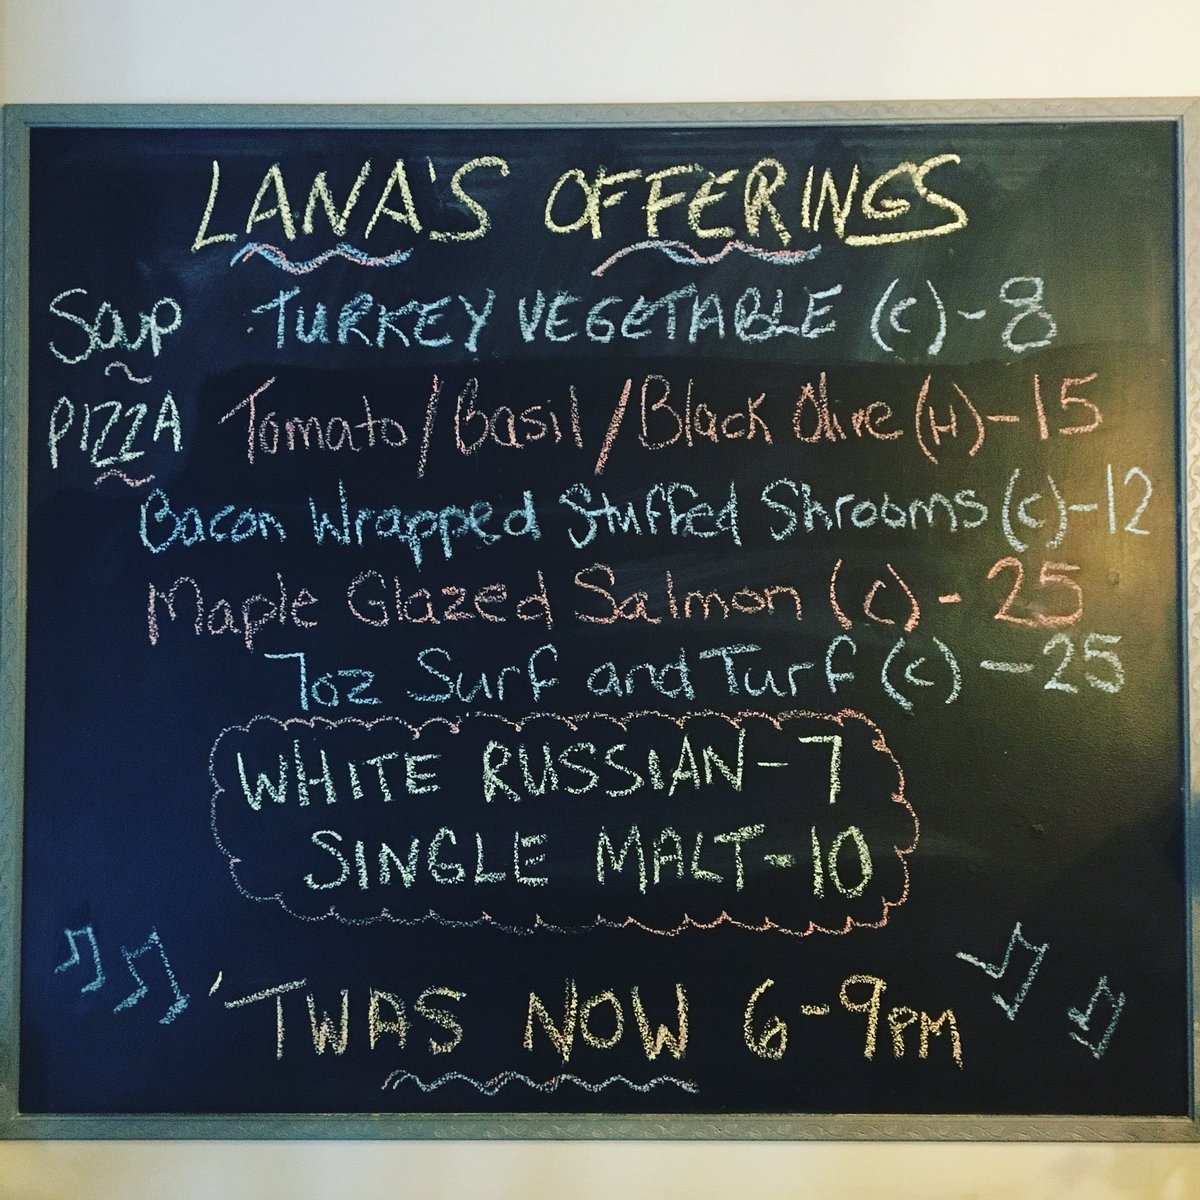 LANA'S OFFERINGS
Soup TURKEY VEGETABLE (C) - 8
PIZZA Tomato/Basil/Black Olive (H) - 15
Bacon Wrapped Stuffed Shrooms (C) - 12
Maple Glazed Salmon (C) - 25
7oz Surf and Turf (C) - 25
WHITE RUSSIAN - 7
SINGLE MALT - 10
'TWAS NOW 6-9PM